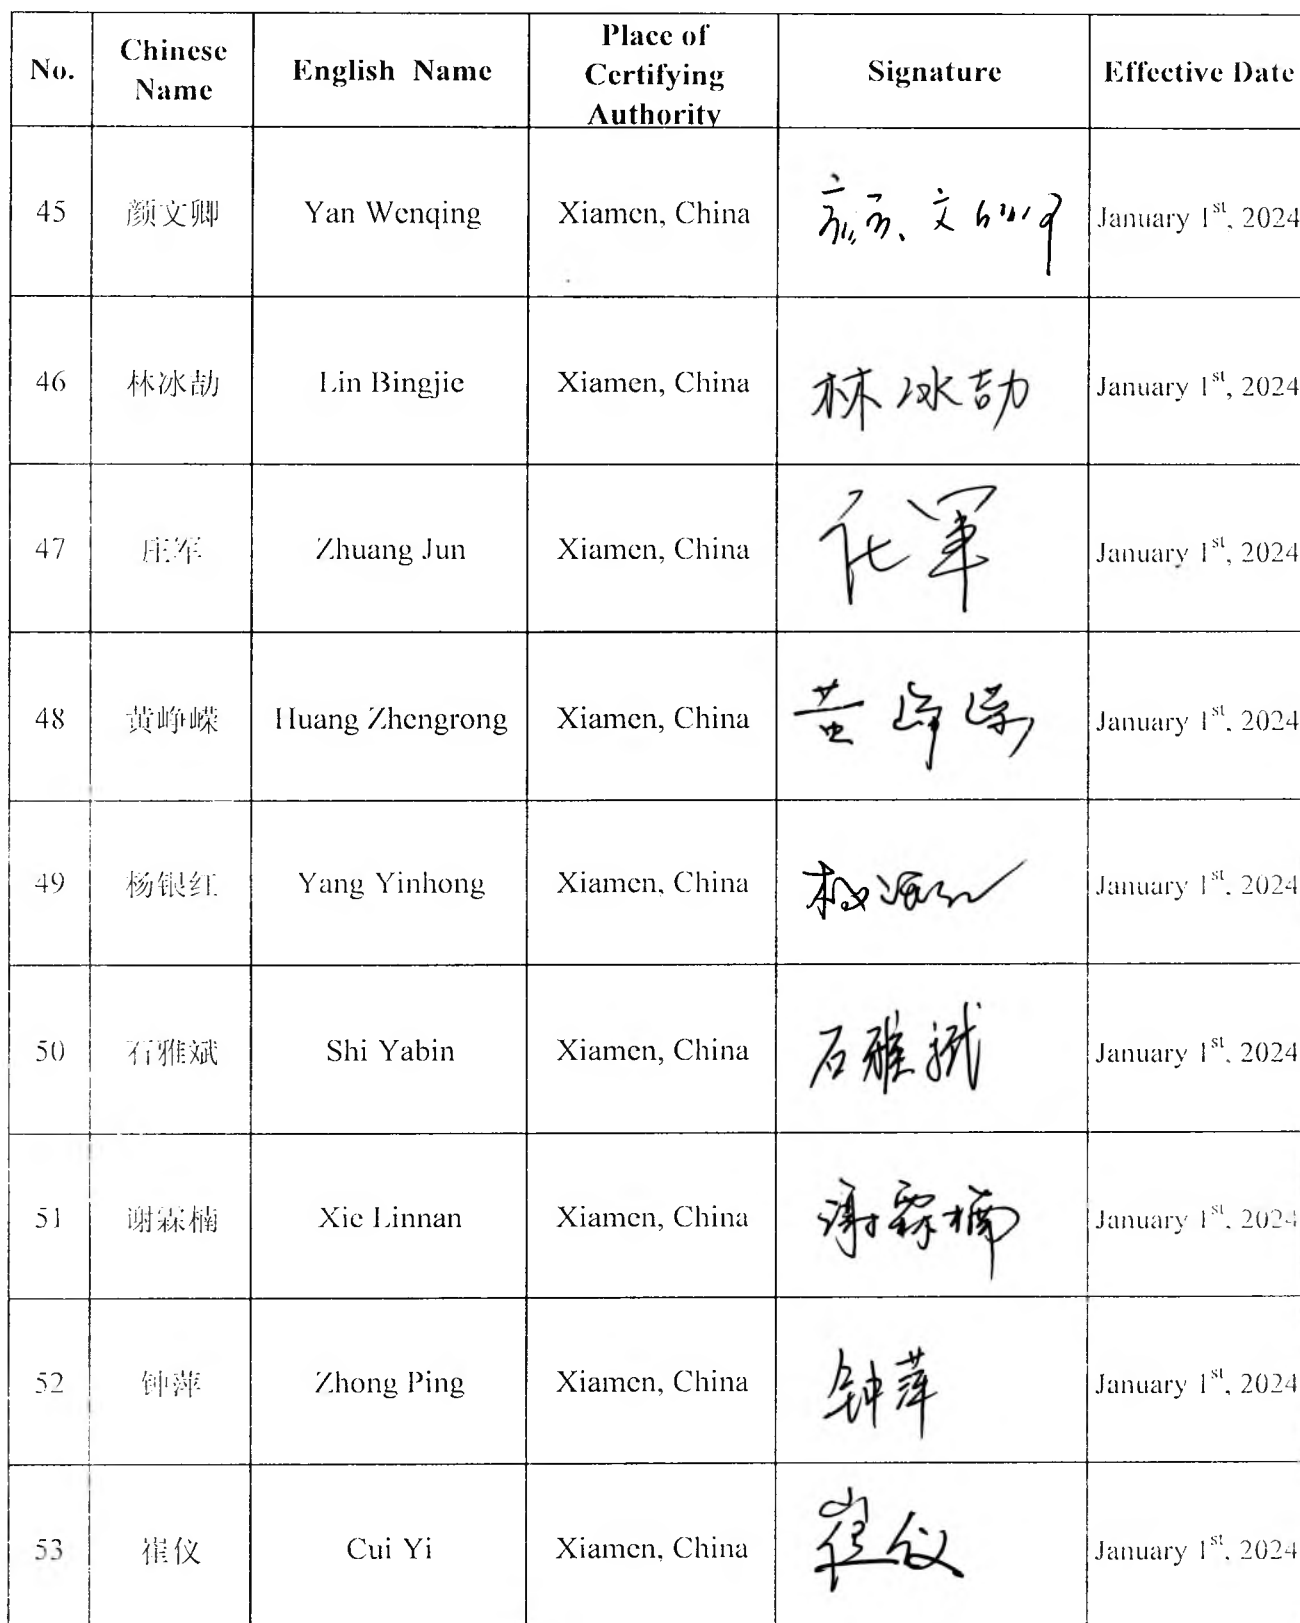 No. Chinese Name English Name Place of Certifying Authority Signature Effective Date
45 颜文卿 Yan Wenqing Xiamen, China 颜文卿 January 1st, 2024
46 林冰劼 Lin Bingjie Xiamen, China 林冰劼 January 1st, 2024
47 庄军 Zhuang Jun Xiamen, China 庄军 January 1st, 2024
48 黄峥嵘 Huang Zhengrong Xiamen, China 黄峥嵘 January 1st, 2024
49 杨银红 Yang Yinhong Xiamen, China 杨银红 January 1st, 2024
50 石雅斌 Shi Yabin Xiamen, China 石雅斌 January 1st, 2024
51 谢霖楠 Xie Linnan Xiamen, China 谢霖楠 January 1st, 2024
52 钟萍 Zhong Ping Xiamen, China 钟萍 January 1st, 2024
53 崔仪 Cui Yi Xiamen, China 崔仪 January 1st, 2024